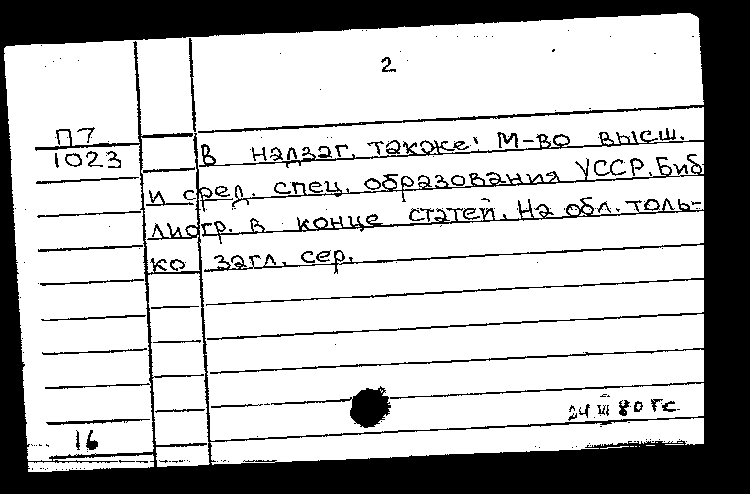 2
П7
1023
В надзаг. также: М-во высш.
и сред. спец. образования УССР. Биб
лиогр. в конце статей. На обл. толь-
ко загл. сер.
24 VI 80 гс
16